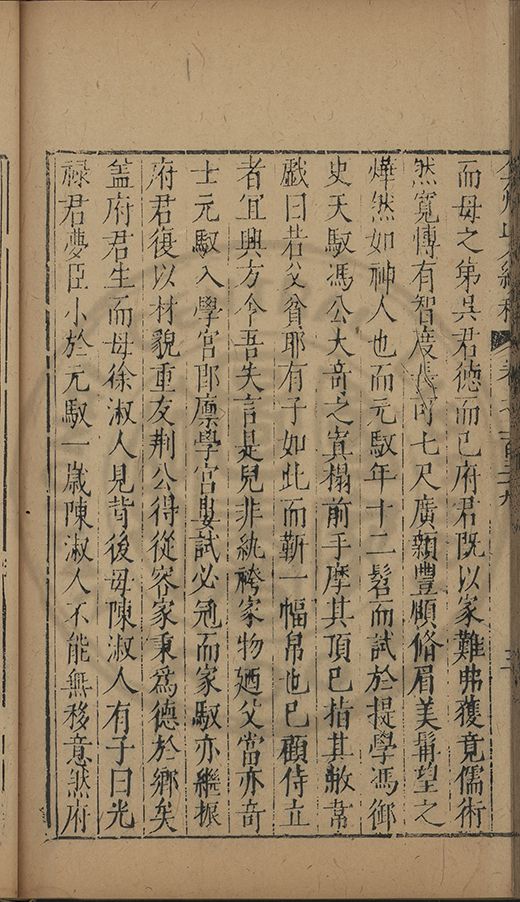 而母之第吳君德而已府君既以家難弗獲竟儒術
然寬愽有智度長可七尺廣顙豐頤脩眉美鬚望之
燁然如神人也而元馭年十二髫而試於提學馮御
史天馭馮公大奇之寘榻前手摩其頂已指其敝常
戲曰若父貧耶有子如此而靳一幅帛也已顧侍立
者宜興方令吾失言是兒非紈袴家物廼父當亦奇
士元馭入學宮郎廪學宮屢試必冠而家馭亦繼振
府君復以材貌重友荆公得從容家秉為德於鄉矣
盖府君生而母徐淑人見背後母陳淑人有子曰光
祿君夢臣小於元馭一歲陳淑人不能無移意然府